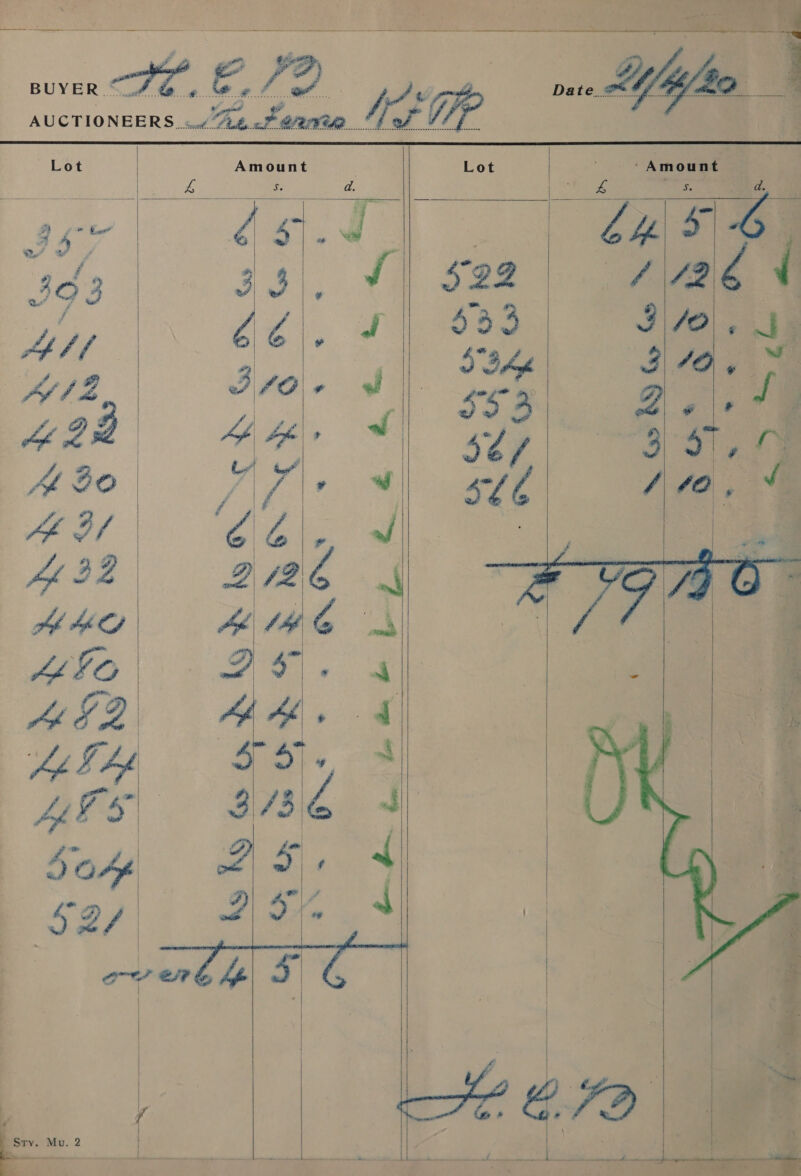 BUYER H. E. B
Date 21/4/20
AUCTIONEERS The Fermio
Lot Amount Lot Amount
£ s. d. £ s. d.
357 6 5 . 64 5 6
393 3 3 . 522 1 12 6
411 6 6 . 533 3 10 .
412 3 10 . 534 3 10 .
422 4 4 . 553 2 . .
430 7 7 . 561 3 5 .
431 6 6 . 566 1 10 .
432 2 12 6 £ 79 13 0
440 4 14 6
480 2 5 .
482 4 4 .
484 5 5 .
485 3 13 6
504 2 5 .
521 2 5 .
OK
over 64 5 6
H. E. B
Sty. Mu. 2